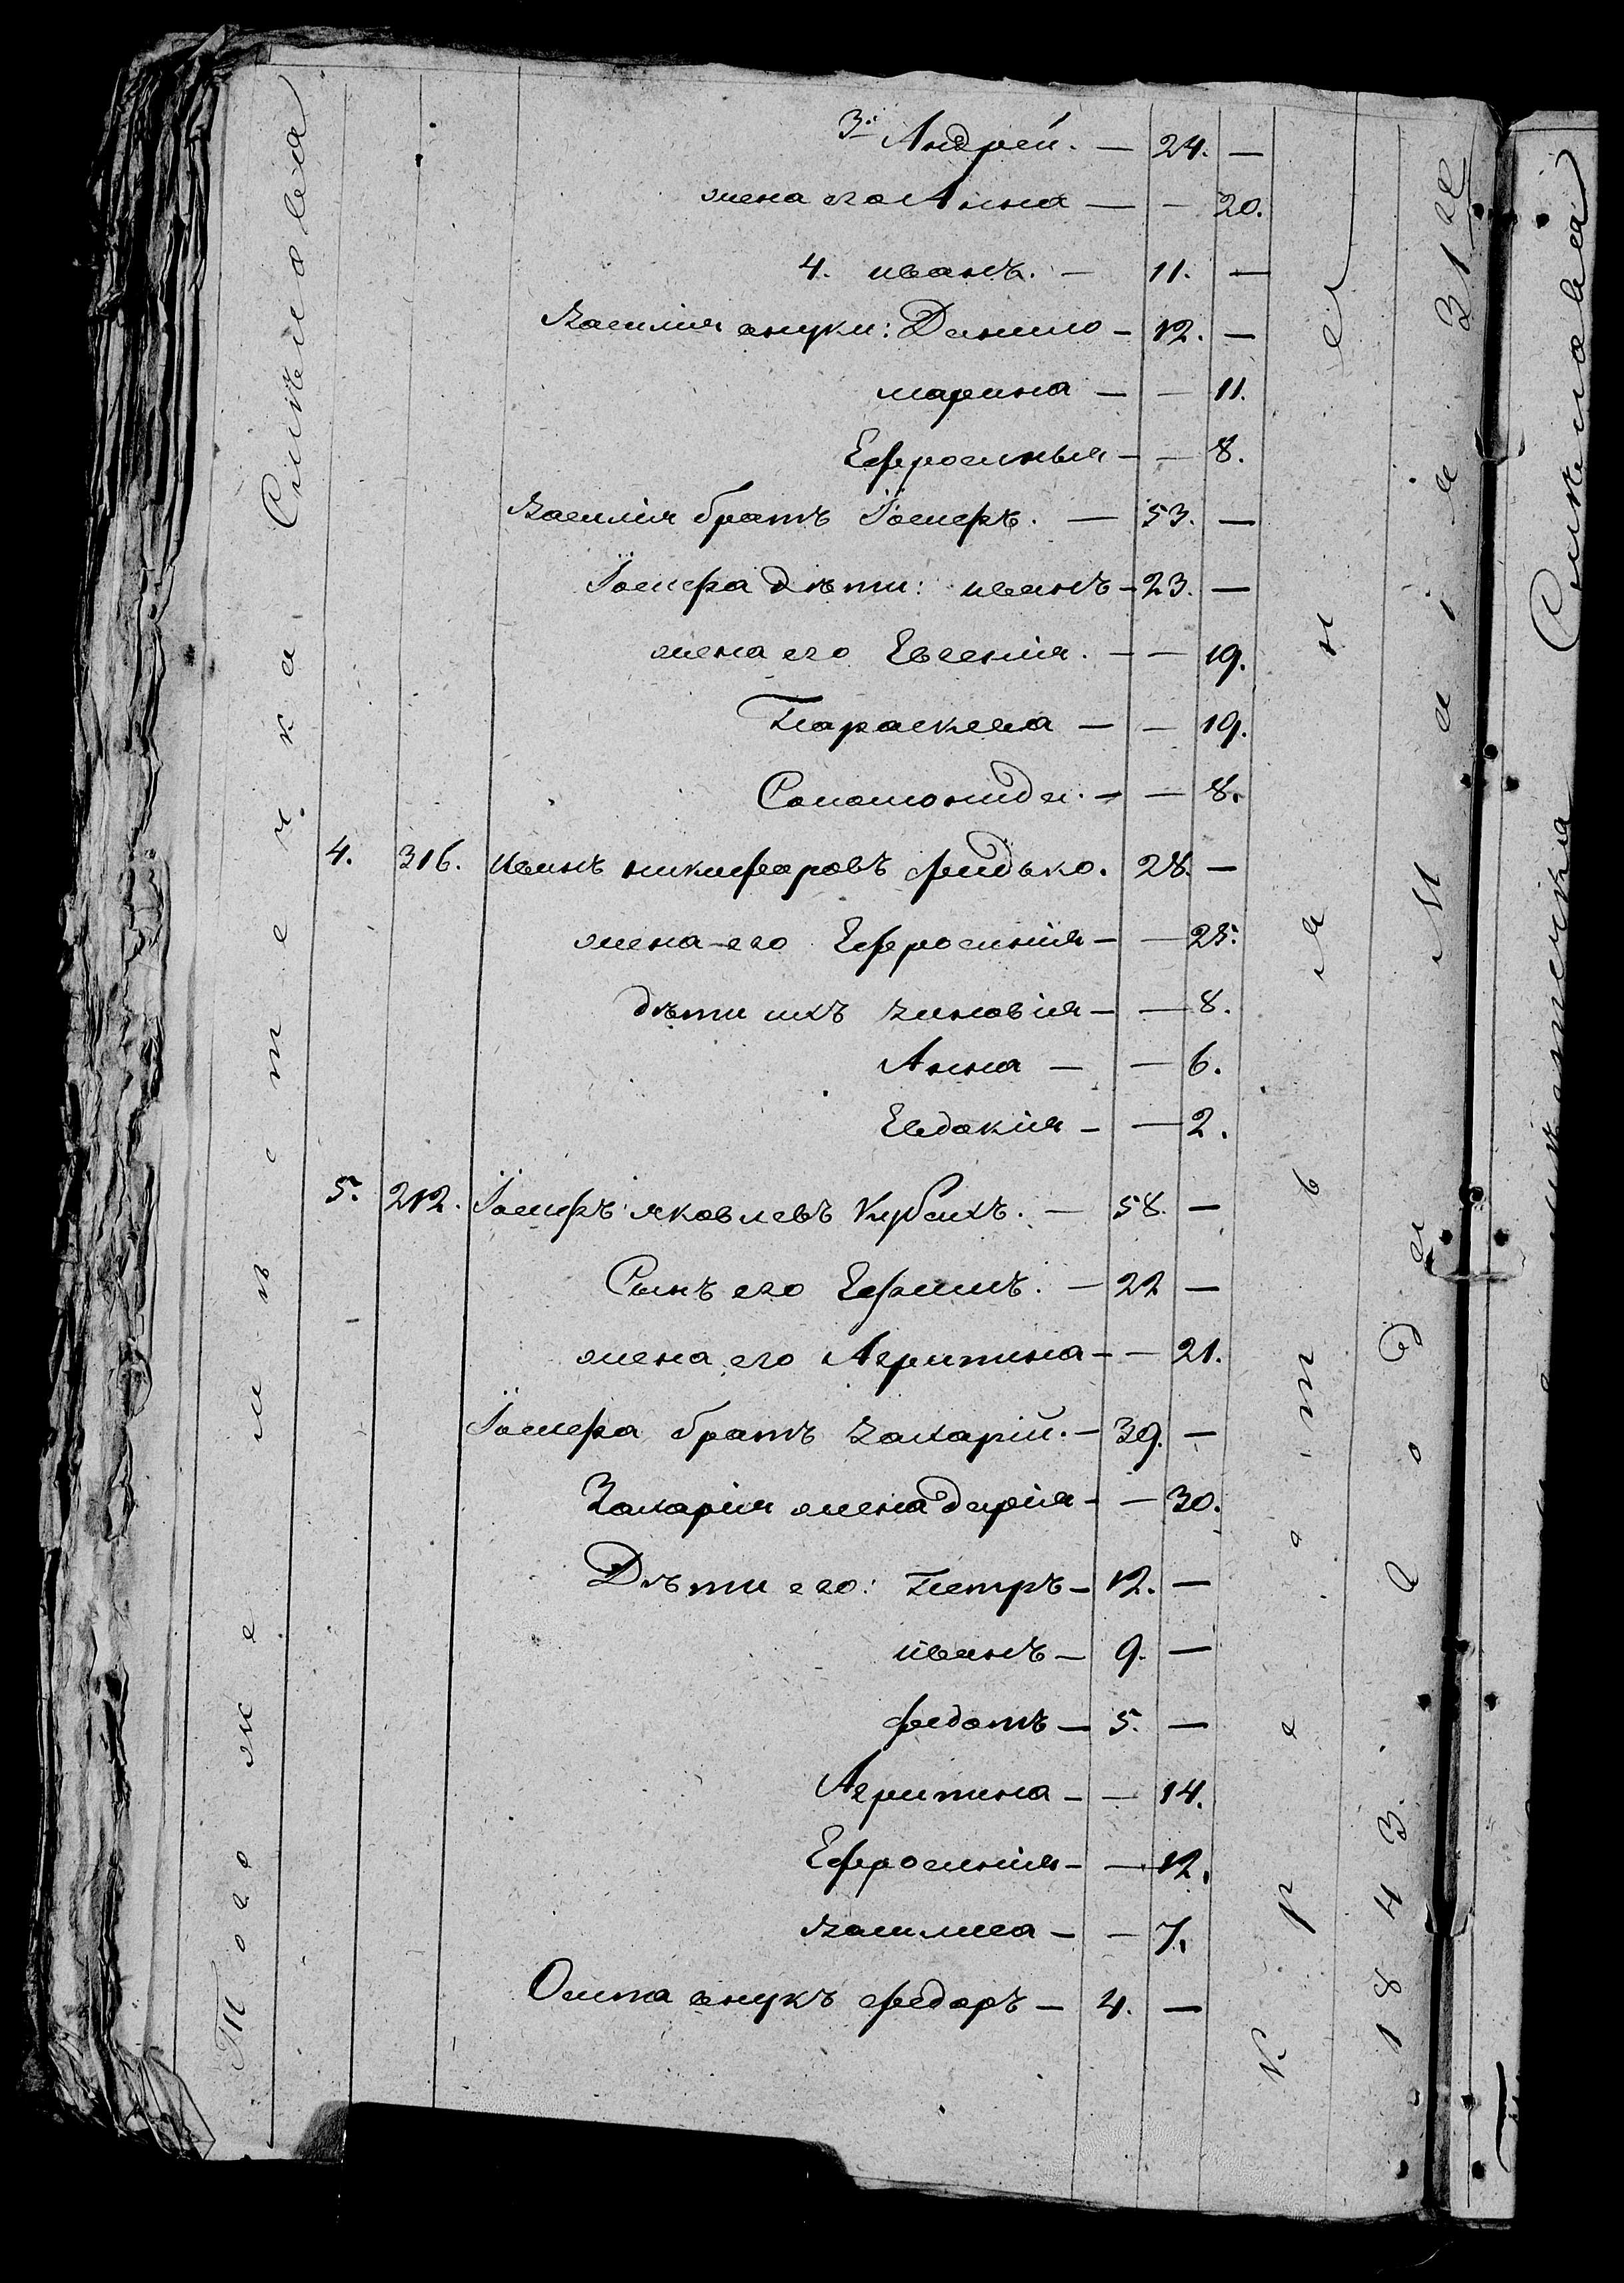 Того же мѣстечка Ситкова
3й Андрей. — 24. —
жена его Анна — — 20.
4. иванъ. — 11. —
Василія внуки: Данило — 12. —
марина — — 11.
Ефросинья — — 8.
Василія братъ Іосифъ. — 53. —
Іосифа дѣти: иванъ — 23. —
жена его Евгенія. — — 19.
Параскева — — 19.
Соломонида. — — 8.
4. 316. Иванъ никифоровъ фидько. 28. —
жена его Ефросинія — — 25.
дѣти ихъ зиновія — — 8.
Анна — — 6.
Евдокия — — 2.
5. 212. Іосифъ яковлевъ — 58. —
Сынъ его Ефимъ. — 22 —
жена его Агрипина — — 21.
Іосифа братъ захарій. — 39. —
Захарія жена дарія — — 30.
Дѣти его: Петръ — 12. —
иванъ — 9. —
федотъ — 5. —
Агрипина — — 14.
Ефросинія — — 12.
василиса — — 7.
внукъ федоръ — 4. —
Крестьяне
1843. года Маія 31